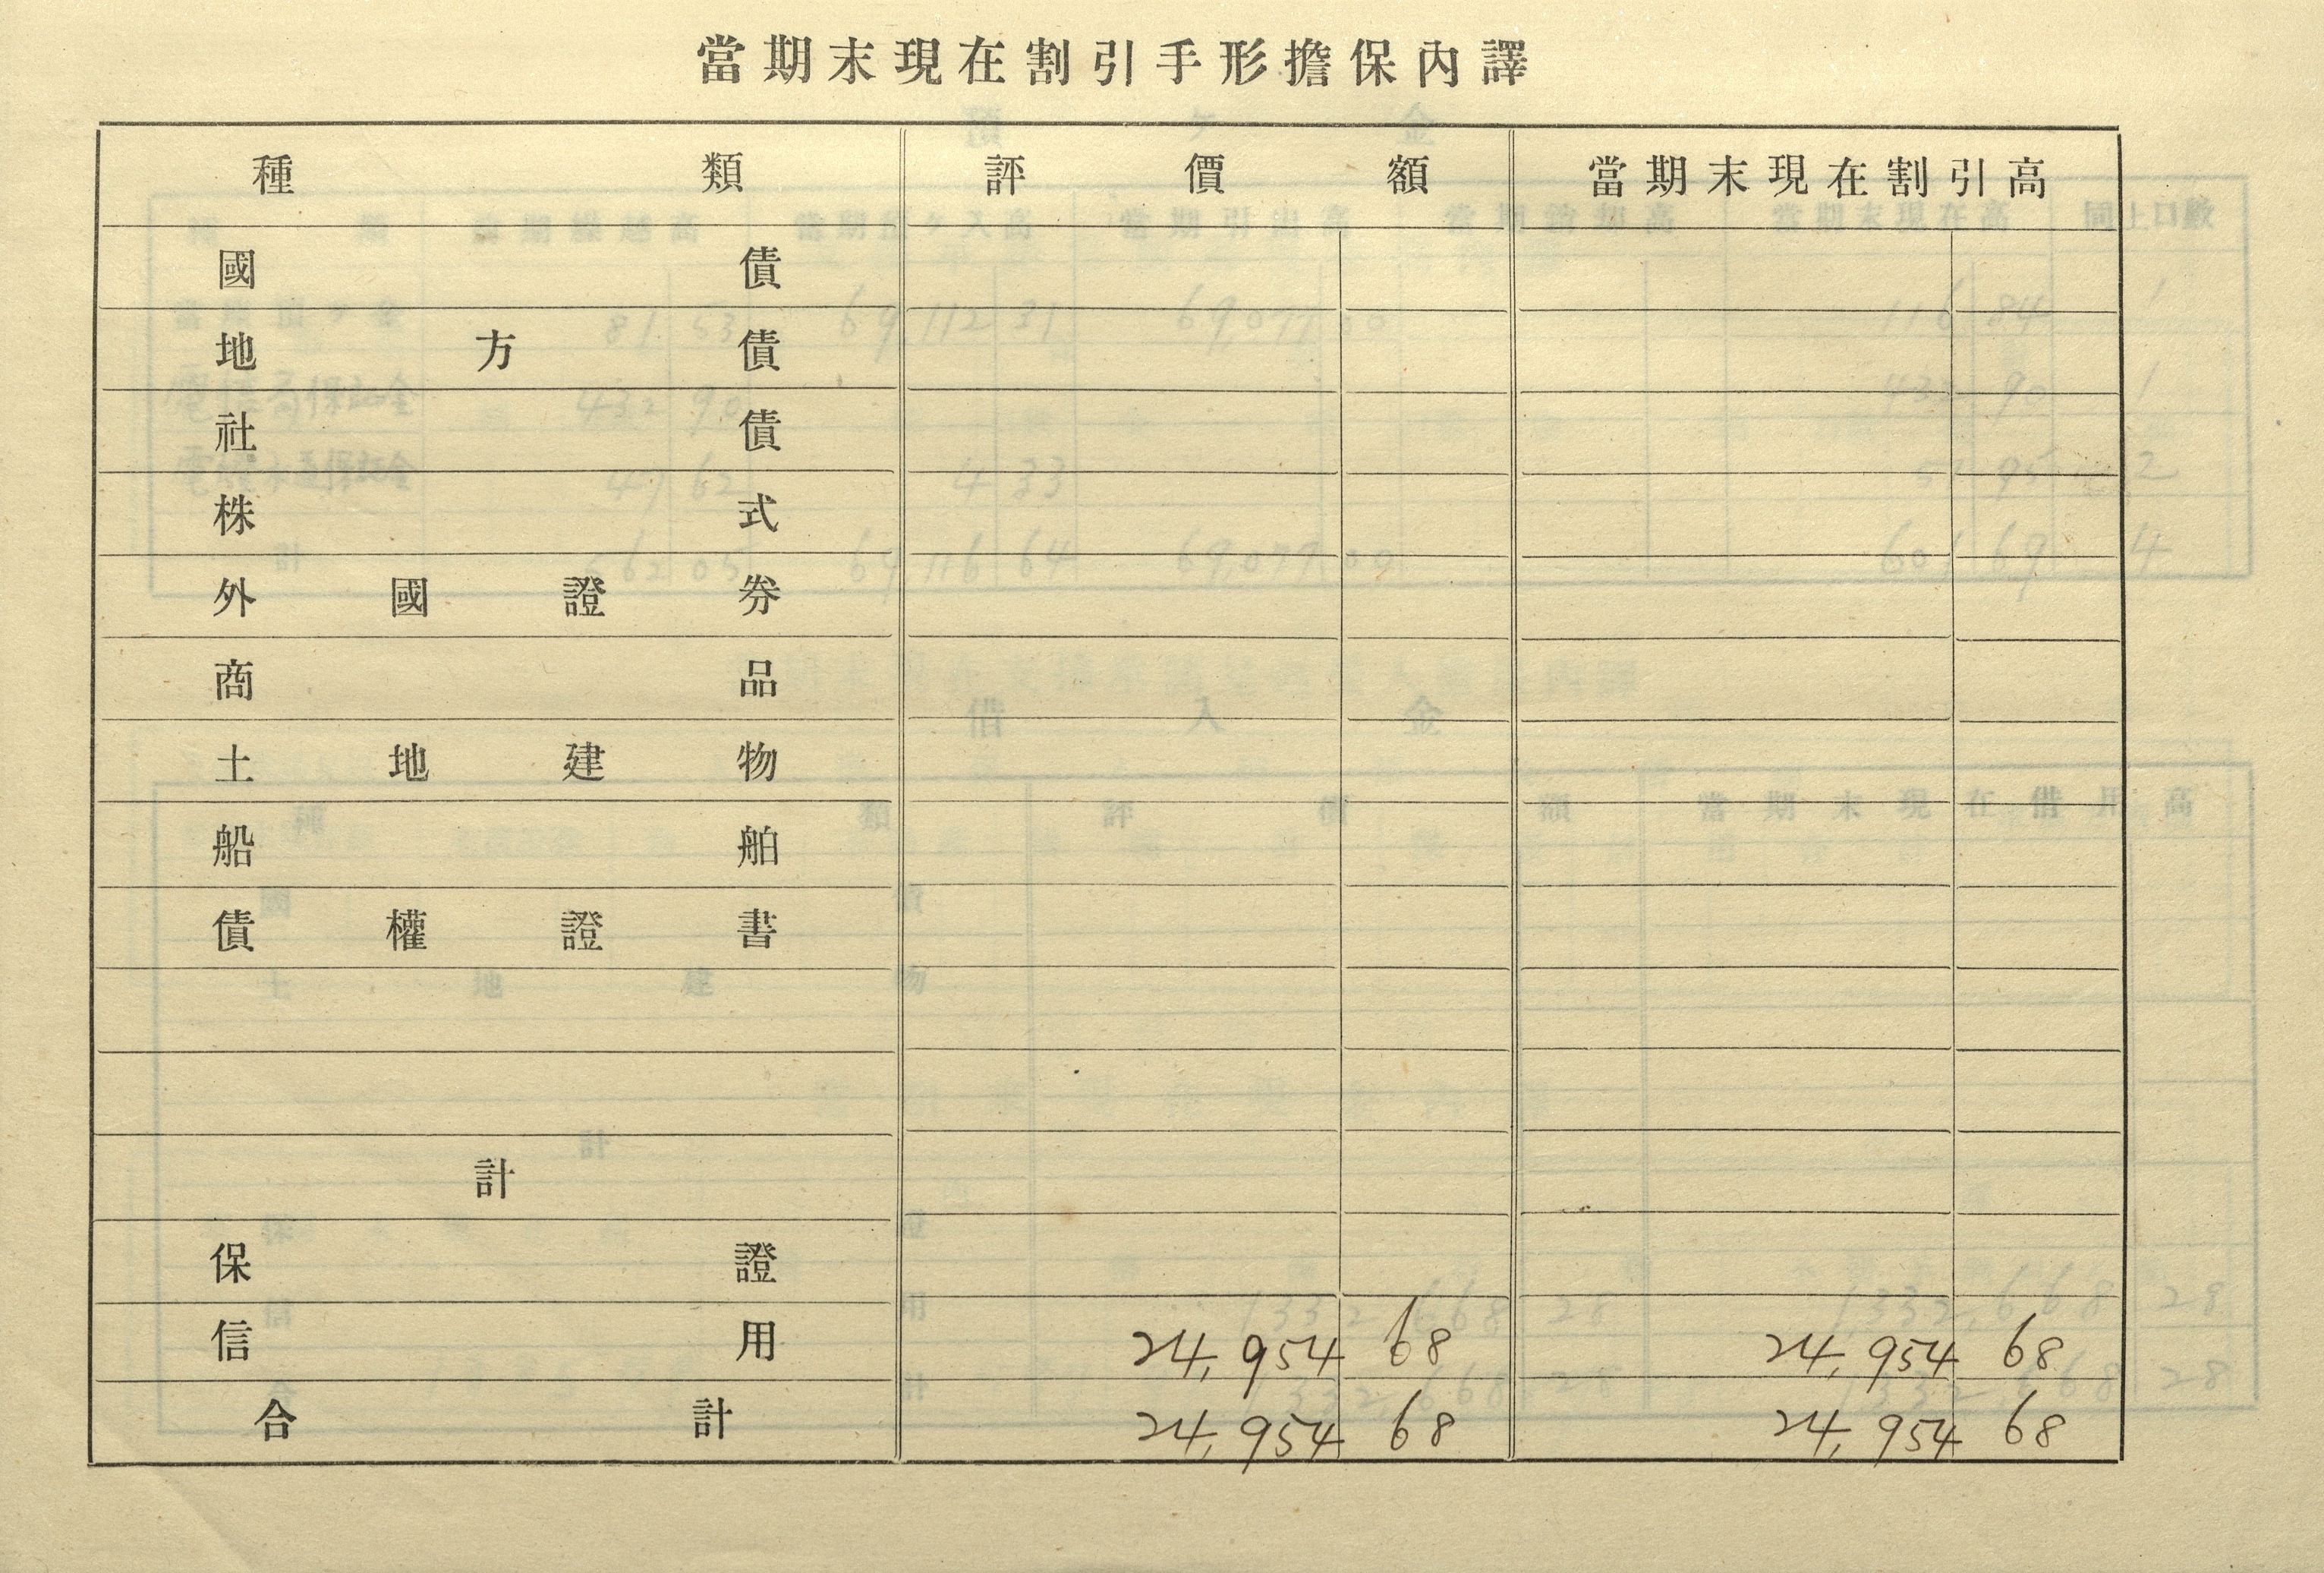 當期末現在割引手形擔保內譯
種類 評價額 當期末現在割引高
國債
地方債
社債
株式
外國證券
商品
土地建物
船舶
債權證書
計
保證
信用 24,954 68 24,954 68
合計 24,954 68 24,954 68